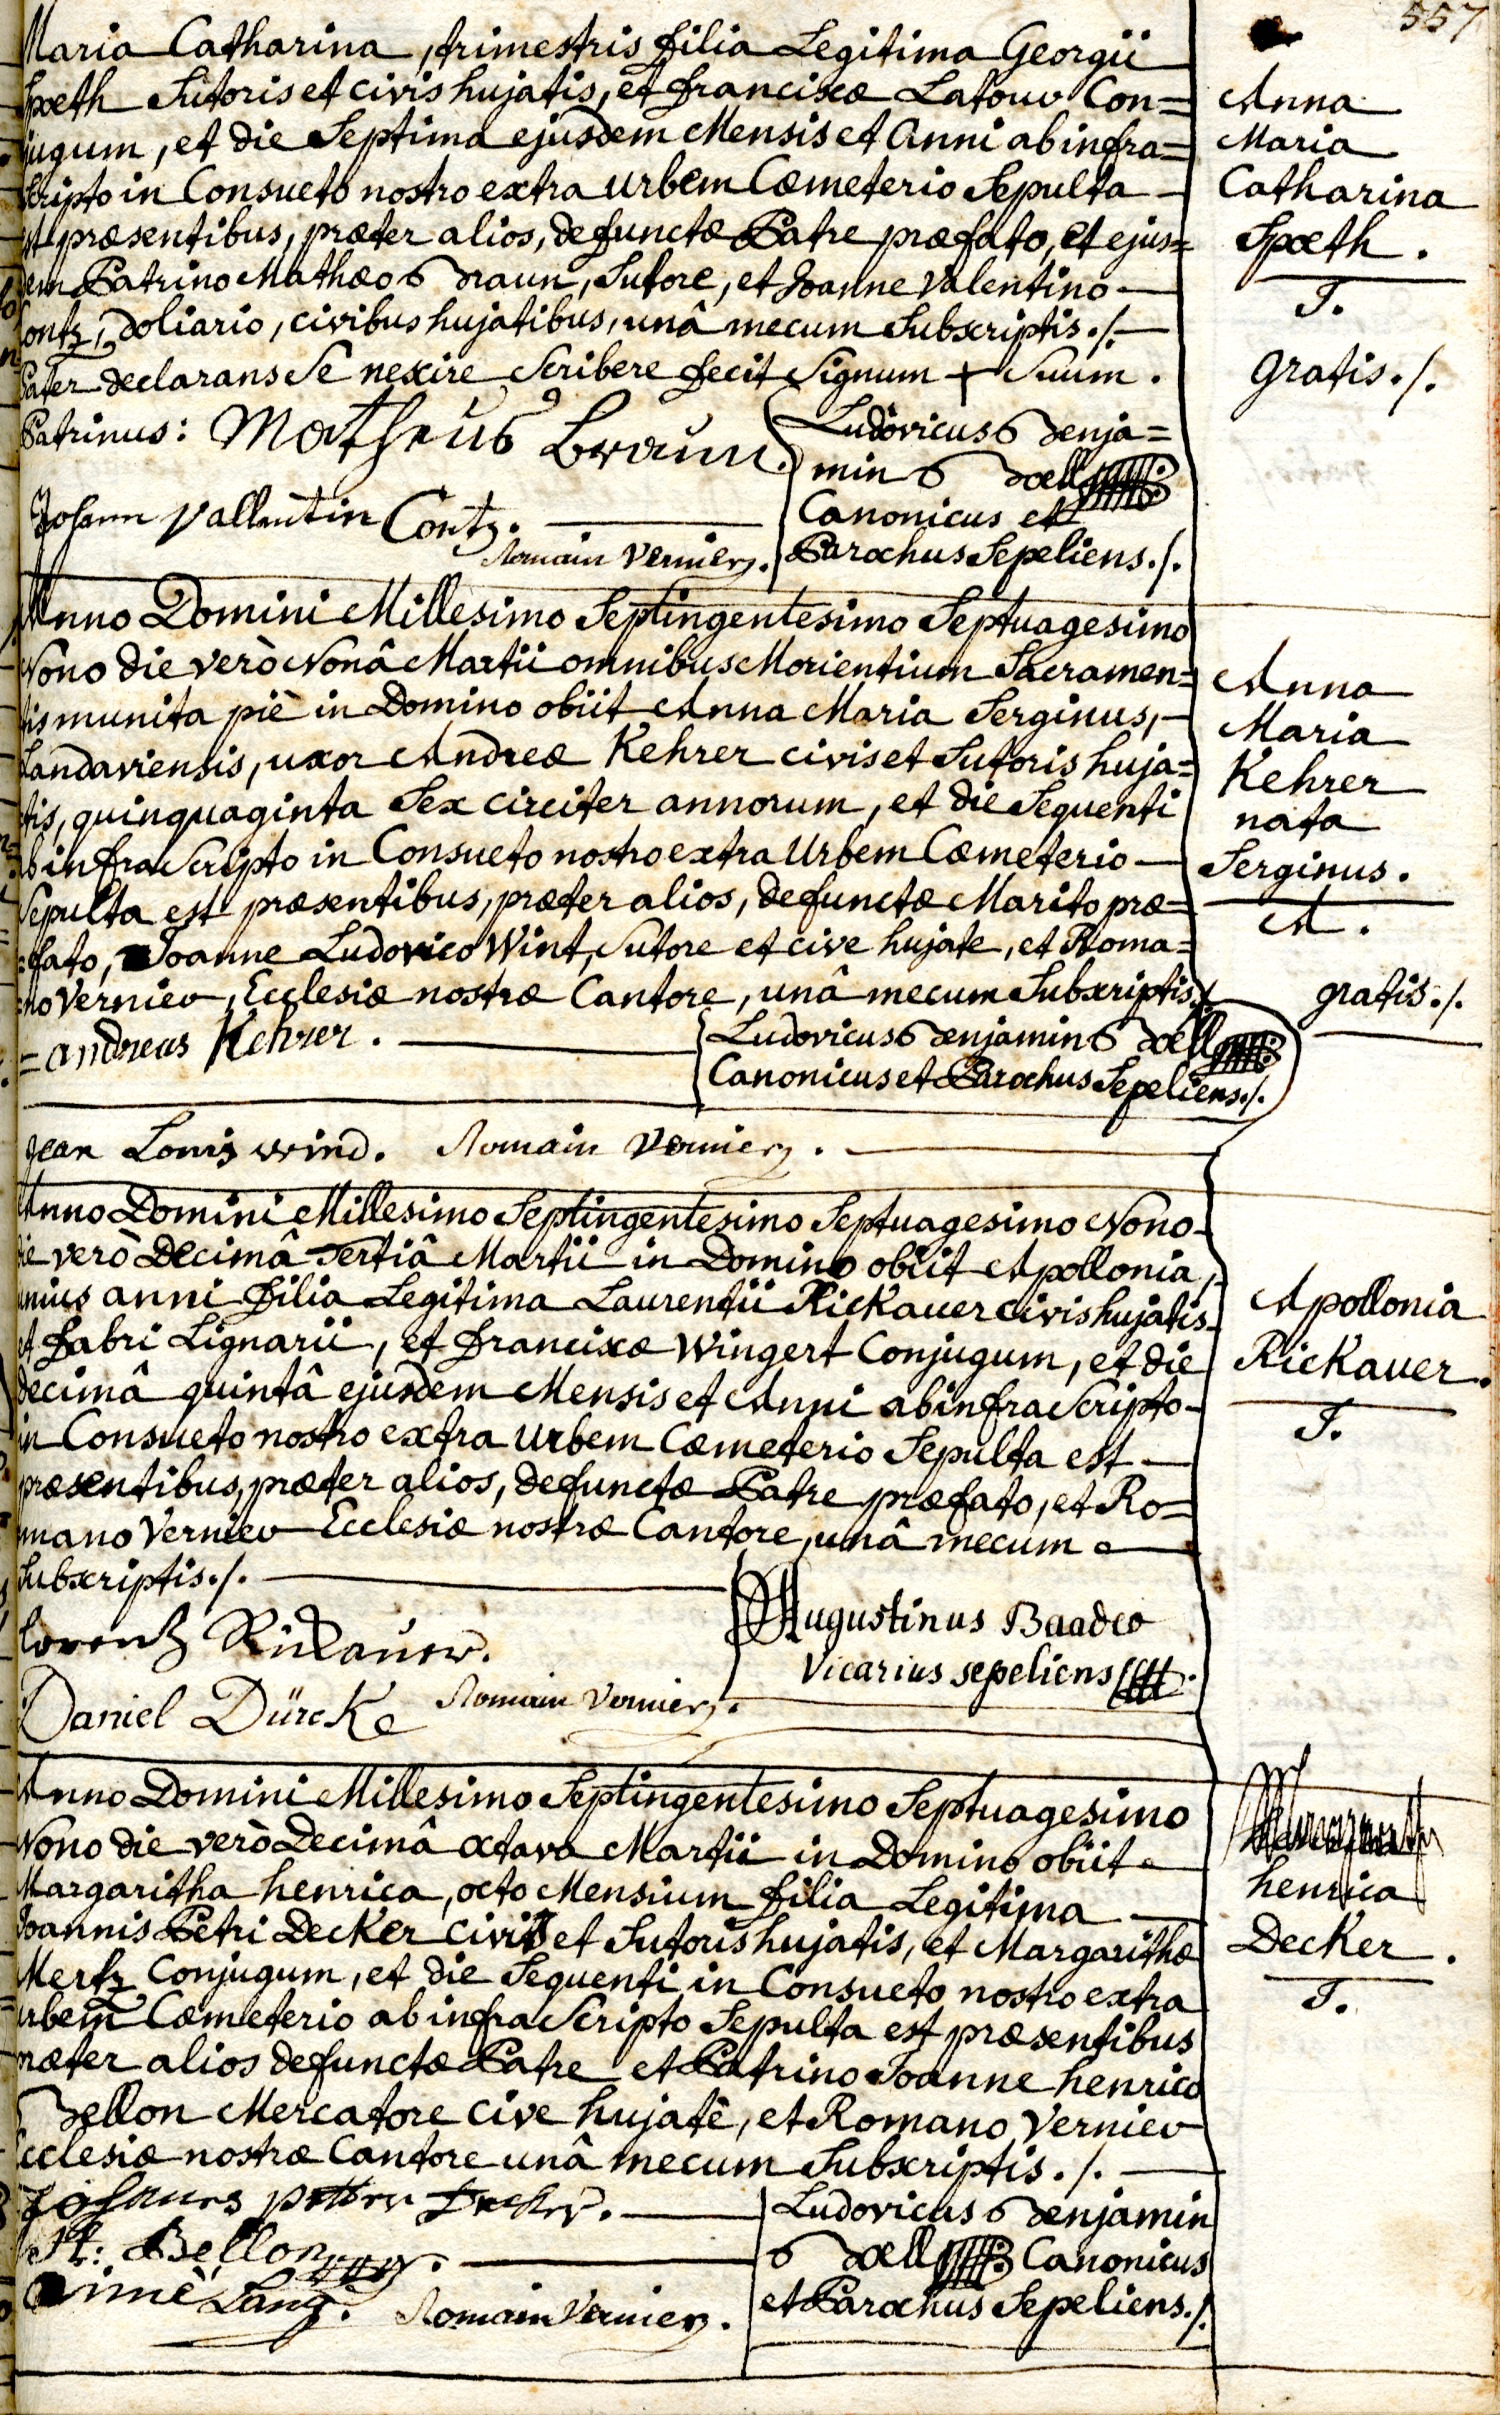 557
Maria Catharina, trimestris filia Legitima Georgii
Spæth Sutoris et civis hujatis, et Franciscæ Latour Con=
jugum, et die Septima ejusdem Mensis et Anni ab infra=
scripto in Consueto nostro extra urbem Cœmeterio Sepulta
est præsentibus, præter alios, defunctæ Patre præfato, et ejus=
dem Patrino Mathæo Braun, Sutore, et Joanne Valentino
Contz, Doliario, civibus hujatibus, unâ mecum Subscriptis./.
Pater declarans se nescire scribere fecit Signum + Suum.
Patrinus: Matheus Braun.
Johann Vallentin Contz.
Romain Vernier.
Ludovicus Benja=
min Boell
Canonicus et
Parochus Sepeliens./.
Anna
Maria
Catharina
Spæth.
T.
gratis./.
Anno Domini Millesimo Septingentesimo Septuagesimo
Nono die verò Nonâ Martii omnibus Morientium Sacramen=
tis munita piè in Domino obiit Anna Maria Serginus,
Landaviensis, uxor Andreæ Kehrer civis et Sutoris huja=
tis, quinquaginta Sex circiter annorum, et die Sequenti
ab infra Scripto in Consueto nostro extra Urbem Cœmeterio
Sepulta est præsentibus, præter alios, defunctæ Marito præ=
=fato, Joanne Ludovico Wint, Sutore et cive hujate, et Roma=
=no Vernier, Ecclesiæ nostræ Cantore, unâ mecum Subscriptis./.
=andreas Kehrer.
Ludovicus Benjamin Boell
Canonicus et Parochus Sepeliens./.
Jean Louis wind. Romain Vernier.
Anna
Maria
Kehrer
nata
Serginus.
A.
gratis./.
Anno Domini Millesimo Septingentesimo Septuagesimo Nono
die verò Decimâ Tertiâ Martii in Domino obiit Apollonia,
unius anni filia Legitima Laurentii Rickauer civis hujatis
et Fabri Lignarii, et Franciscæ Wingert Conjugum, et die
decimâ quintâ ejusdem Mensis et Anni ab infra Scripto
in Consueto nostro extra urbem Cœmeterio Sepulta est
præsentibus, præter alios, defunctæ Patre præfato, et Ro=
mano Vernier Ecclesiæ nostræ Cantore, unâ mecum
Subscriptis./.
Lorentz Rickauer.
Daniel Dürcke Romain Vernier.
Augustinus Baader
Vicarius sepeliens
Apollonia
Rickauer.
T.
Anno Domini Millesimo Septingentesimo Septuagesimo
Nono die verò Decimâ octava Martii in Domino obiit
Margaritha henrica, octo Mensium filia Legitima
Joannis Petri Decker civis et Sutoris hujatis, et Margarithæ
Mertz Conjugum, et die Sequenti in Consueto nostro extra
urbem Cœmeterio ab infra Scripto Sepulta est præsentibus
præter alios defunctæ Patre et Patrino Joanne henrico
Bellon Mercatore cive hujate, et Romano Vernier
Ecclesiæ nostræ Cantore unâ mecum Subscriptis./.
Johannes petter Decker.
H: Bellon
Aimé Lang. Romain Vernier.
Ludovicus Benjamin
Boell Canonicus
et Parochus Sepeliens./.
henrica
Decker.
T.